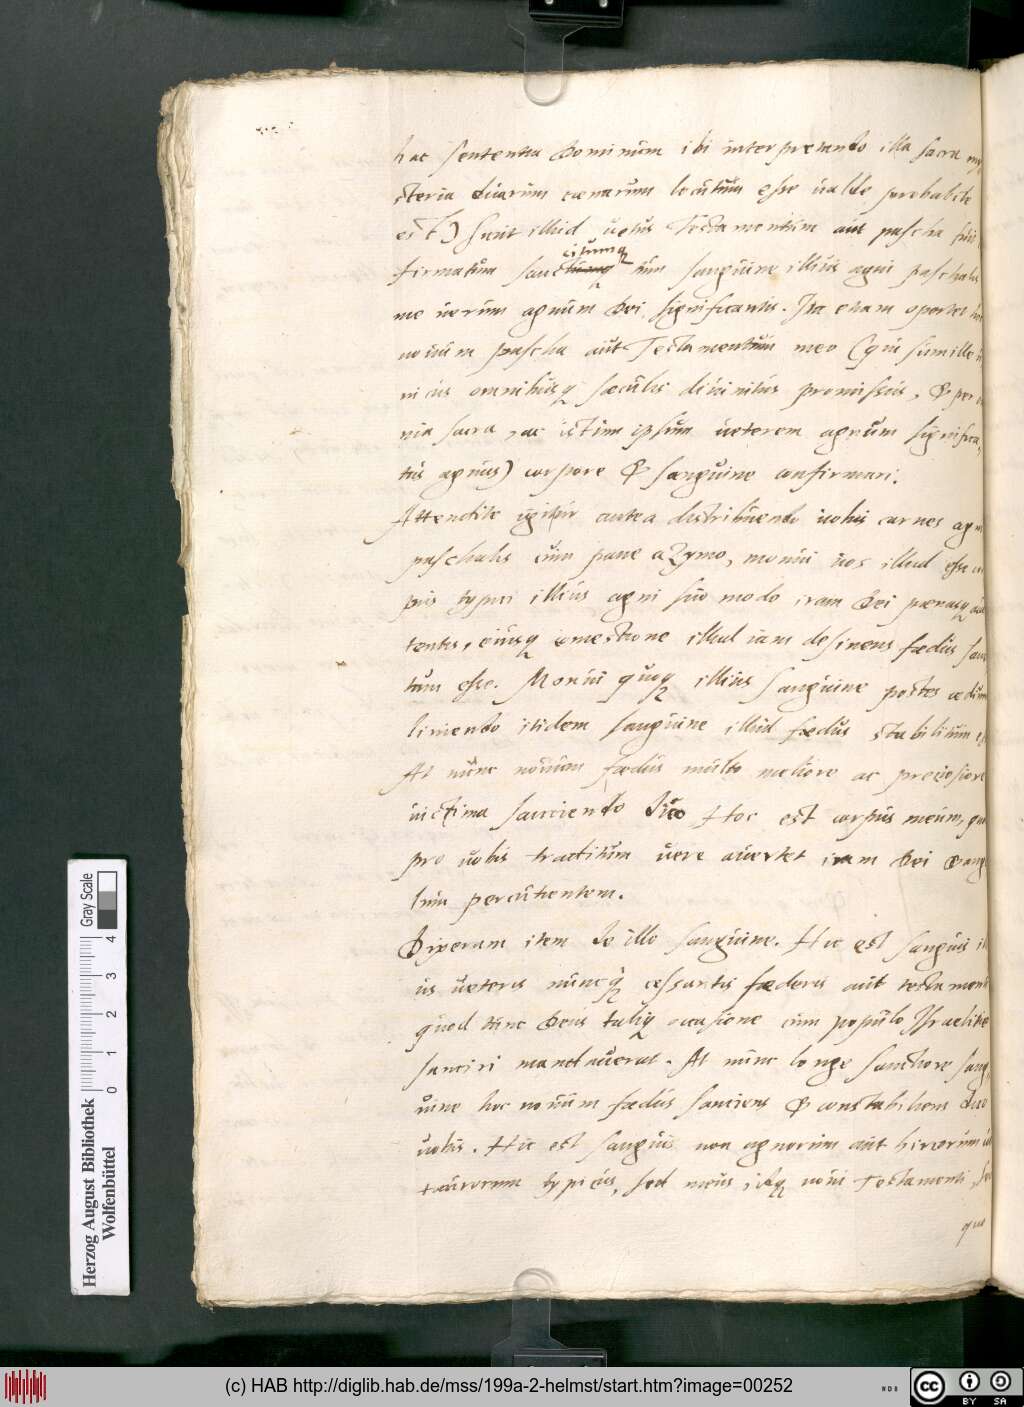 hac sententia Dominum ibi interpretando illa sacra my
steria duarum cænarum locutum esse ualde probabile
est) Sicut illud uetus Testamentum aut pascha fuit
firmatum sancitumq
cum sanguine illius agni paschalis
me uerum agnum Dei significantis. Ita etiam oportet hoc
nouum pascha aut Testamentum meo (qui sum ille u
nicus omnibusq sæculis diuinitus promissus, & per o
nia sacra, ac istum ipsum ueterem agnum significa,
tus agnus) corpore & sanguine confirmari.
Attendite igitur antea distribuendo uobis carnes agni
paschalis cum pane azymo, monui uos illud esse cor
pus typici illius agni suo modo iram Dei pænasq
tentis, eiusq comestione illud iam desinens fædus sanci
tum esse. Monui quoq illius sanguine postes ædium
liniendo itidem sanguine illud fædus stabilitum esse
At nunc nouum fædus multo meliore ac preciosiore
uictima sanciendo Dico Hoc est corpus meum, quod
pro uobis traditum uere auertet iram Dei & ang
lum percutientem.
Dixeram item de illo sanguine. Hic est sanguis ill
ius ueteris nuncq cessantis fæderis aut testamenti
quod tunc Deus taliq occasione cum populo Israelitico
sanciri mandauerat. At nunc longe sanctiore sang
uine hoc nouum fædus sanciens & constabiliens dico
uobis. Hic est sanguis non agnorum aut hircorum
taurorum typicus, sed meus, idq noui Testamenti, 
qui
Herzog August Bibliothek
Wolfenbüttel
0 1 2 3 4
Gray Scale
(c) HAB http://diglib.hab.de/mss/199a-2-helmst/start.htm?image=00252
cc BY SA